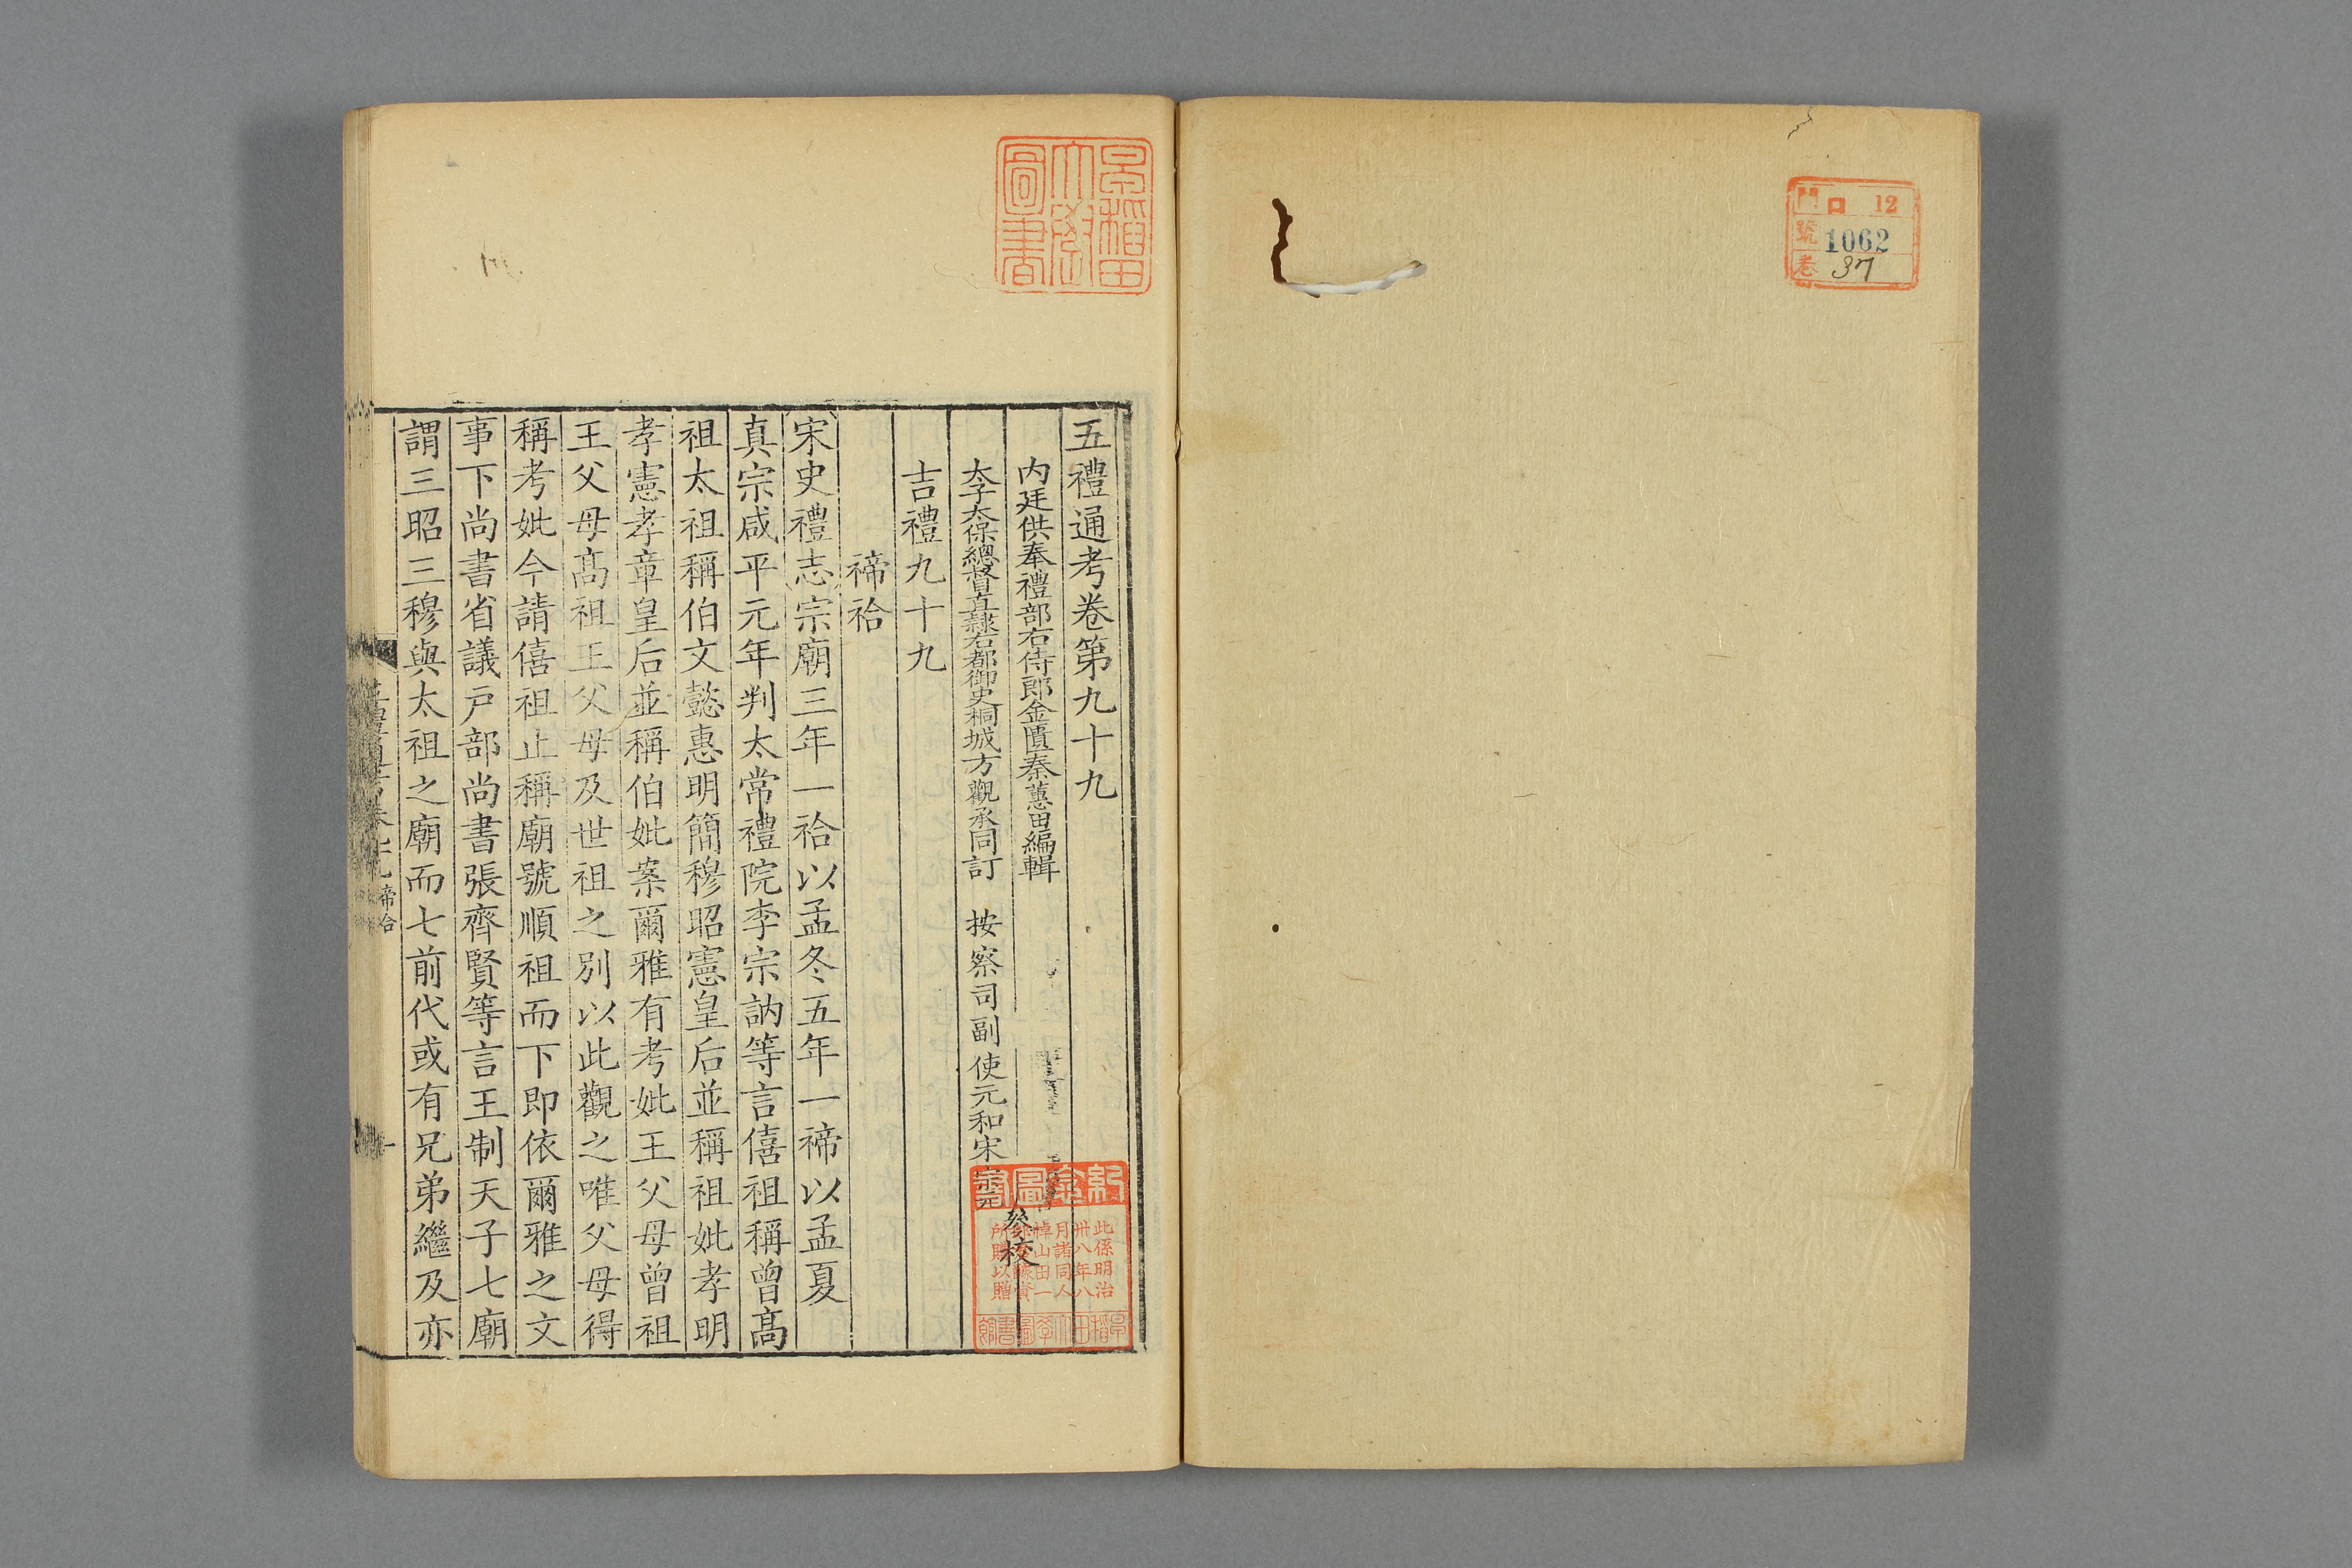 門 ロ 12
號 1062
卷 37
早稲田大學圖書
五禮通考卷第九十九
内廷供奉禮部右侍郎金匱秦蕙田編輯
太子太保總督直隸右都御史桐城方觀承同訂 按察司副使元和宋宗元
參校
吉禮九十九
禘祫
宋史禮志宗廟三年一祫以孟冬五年一禘以孟夏
真宗咸平元年判太常禮院李宗訥等言僖祖稱曾髙
祖太祖稱伯文懿惠明簡穆昭憲皇后並稱祖妣孝明
孝憲孝章皇后並稱伯妣案爾雅有考妣王父母曾祖
王父母髙祖王父母及世祖之别以此觀之唯父母得
稱考妣今請僖祖止稱廟號順祖而下即依爾雅之文
事下尚書省議戸部尚書張齊賢等言王制天子七廟
謂三昭三穆與太祖之廟而七前代或有兄弟繼及亦
禘祫
一
紀念圖書
此係明治
卅八年八
月諸同人
悼山田一
所賻以贈
早稲田大學圖書館